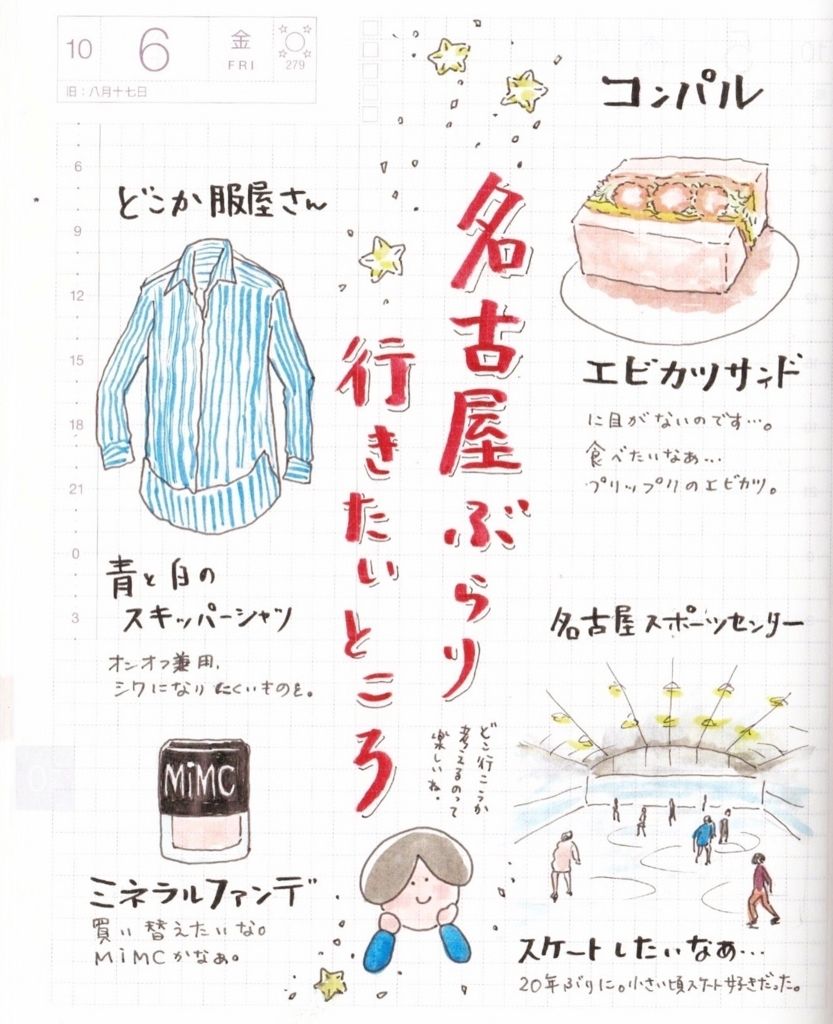 10
6
金
FRI
279
旧:八月十七日
6
9
12
15
18
21
0
3
名古屋ぶらり
行きたいところ
どこか服屋さん
青と白の
スキッパーシャツ
オンオフ兼用、
シワになりにくいものを。
MiMC
ミネラルファンデ
買い替えたいな。
MiMCかなぁ。
コンパル
エビカツサンド
に目がないのです…。
食べたいなぁ…
プリップリのエビカツ。
名古屋スポーツセンター
スケートしたいなぁ…
20年ぶりに。小さい頃スケート好きだった。
どこ行こうか
考えてるのって
楽しいね。